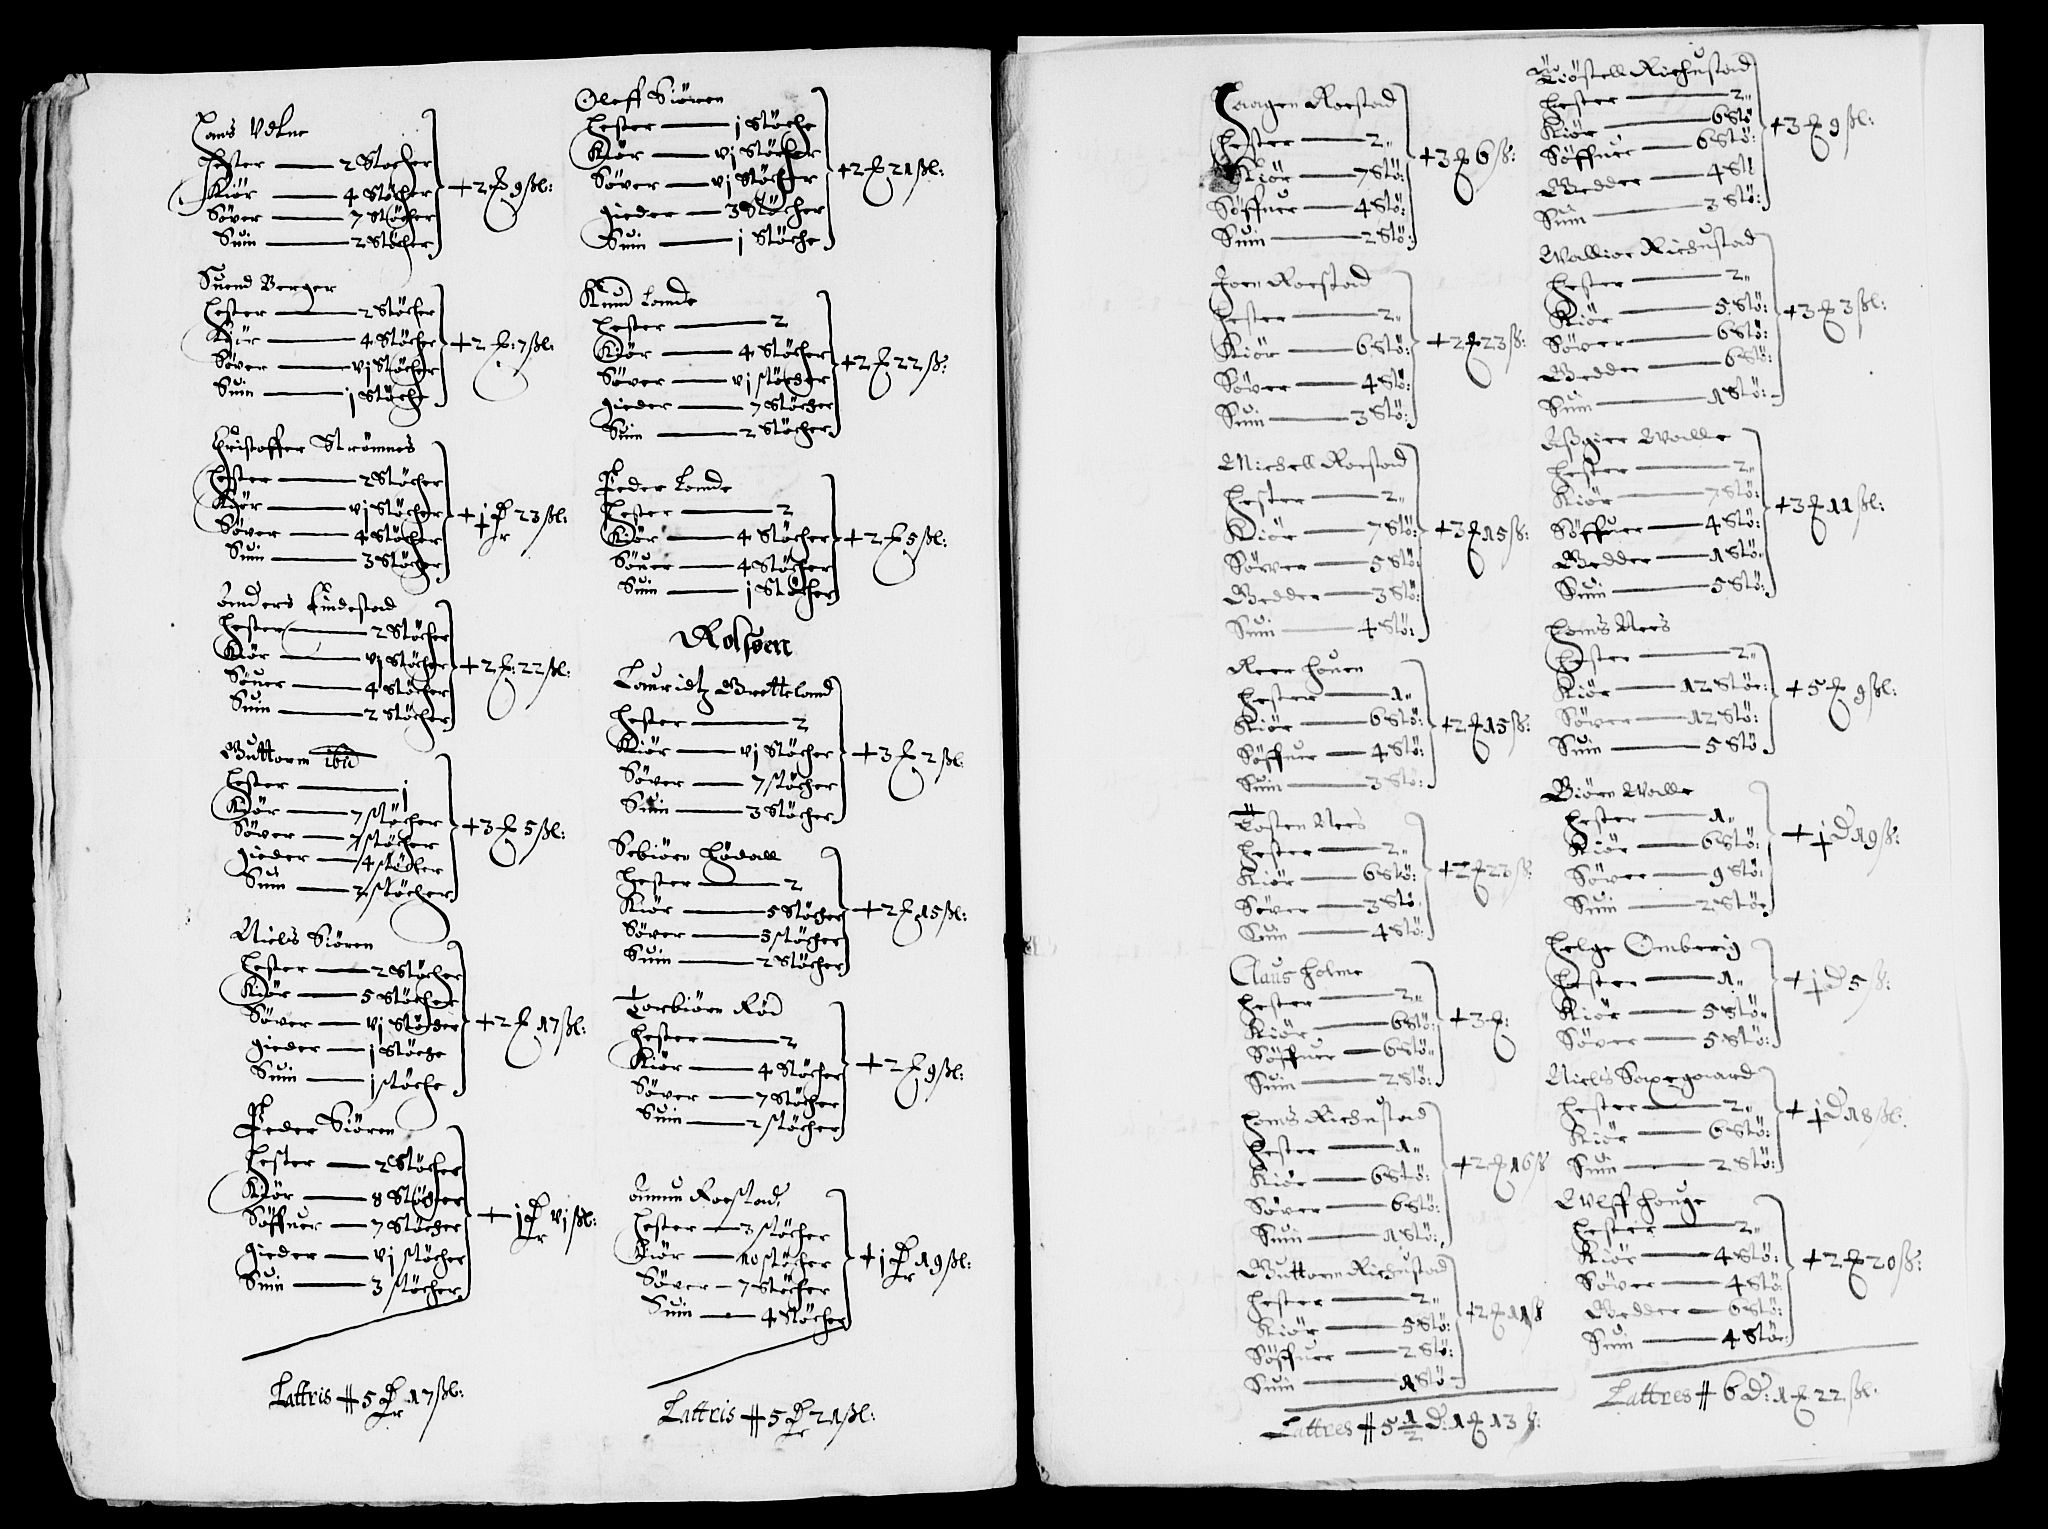 Hans Vdlne
Hester — 2 Støcher
Kiör — 4 Støcher
Söver — 7 Støcher
Suin — 2 Støcher
+ 2 ℳ 9 ßl:
Suend Berger
Hester — 2 Støcher
Kiör — 4 Støcher
Söver — vj Støcher
Suin — j Støche
+ 2 ℳ: 7 ßl:
Christoffer Strømnes
Hester — 2 Støcher
Kiör — vj Støcher
Söver — 4 Støcher
Suin — 3 Støcher
+ j 23 ßl:
Anders Lindestad
Hester — 2 Støcher
Kiör — vj Støcher
Söuer — 4 Støcher
Suin — 2 Støcher
+ 2 ℳ: 22 ßl:
Guttorm ibid
Hester — j
Kiör — 7 støcher
Söver — 7 støcher
gieder — 4 støcher
Suin — 2 støcher
+ 3 ℳ 5 ßl:
Niels Siören
Hester — 2 Støcher
Kiör — 5 Støcher
Söver — vj Støcher
gieder — j Støche
Suin — j støche
+ 2 ℳ 17 ßl:
Peder Siören
Hester — 2 Støcher
Kiör — 8 Støcher
Söffuer — 7 Støcher
gieder — vj støcher
Suin — 3 støcher
+ j vj ßl:
Lattris # 5 17 ßl:
Oleff Siören
Hester — j Støche
Kiör — vj Støcher
Söver — vj Støcher
gieder — 3 Støcher
Suin — j Støche
+ 2 ℳ 21 ßl:
Knud Lomde
Hester — 2
Kiör — 4 Støcher
Söver — vj støcher
gieder — 7 Støcher
Suin — 2 Støcher
+ 2 ℳ 22 ß:
Peder Lomde
Hester — 2
Kiör — 4 Støcher
Söuer — 4 Støcher
Suin — j Støcher
+ 2 ℳ 5 ßl:
Rolfsøen
Lauridtz Bretteland
Hester — 2
Kiör — vj Støcher
Söver — 7 støcher
Suin — 3 Støcher
+ 3 ℳ 2 ßl:
Sebiörn Hødall
Hester — 2
Kiör — 5 Støcher
Söver — 5 støcher
Suin — 2 Støcher
+ 2 ℳ 15 ßl:
Torbiörn Röd
Hester — 2
Kiör — 4 Støcher
Söver — 7 Støcher
Suin — 2 støcher
+ 2 ℳ 9 ßl:
Amun Roestad
Hester — 3 støcher
Kiör — 10 støcher
Söver — 7 Støcher
Suin — 4 Støcher
+ j 19 ßl:
Lattris # 5 21 ßl:
Haagen Roestad
Hester — 2"
Kiör — 7 Stö:
Söffuer — 4 Stö:
Suin — 2 Stö:
+ 3 ℳ 6 ß:
Joen Roestad
Hester — 2"
Kiör — 6 Stö:
Söver — 4 Stö:
Suin — 3 Stö:
+ 2 ℳ 23 ß:
Michell Roestad
Hester — 2"
Kiör — 7 Stö:
Söwer — 5 Stö:
Bedder — 3 Stö:
Suin — 4 Stö:
+ 3 ℳ 15 ß:
Reer Houen
Hester — 1"
Kiör — 6 Stö:
Söffuer — 4 Stö:
Suin — 3 Stö:
+ 2 ℳ 15 ß:
Tosten Nees
Hester — 2"
Kiör — 6 Stö:
Söver — 3 Stö
Suin — 4 Stö:
+ 2 ℳ 22 ß:
Claus Holme
Hester — 2"
Kiör — 6 Stö:
Söffuer — 6 Stö"
Suin — 2 Stö:
+ 3 ℳ:
Hans Richustad
Hester — 1"
Kiör — 6 Stö:
Söver — 6 Stö:
Suin — 1 Stö:
+ 2 ℳ 16 ß
Guttorm Richustad
Hester — 2"
Kiör — 5 Stö:
Söffuer — 2 Stö:
Suin — 1 Stö
+ 2 ℳ 11 ß
Lattres # 5 1/2 d: 1 ℳ 13 ß:
Kiöstell Richustad
Hester — 2"
Kiör — 6 Stö
Söffuer — 6 Stö:
Bedder — 4 Stö
Suin — 3 Stö:
+ 3 ℳ 9 ßl:
Wallior Richustad
Hester — 2"
Kiör — 5 Stö:
Söver — 6 Stö:
Bedder — 6 Stö:
Suin — 1 Stö:
+ 3 ℳ 3 ßl:
Aßgier Walle
Hester — 2"
Kiör — 7 Stö:
Söffuer — 4 Stö:
Bedder — 1 Stö"
Suin — 5 Stö:
+ 3 ℳ 11 ßl:
Hans Nees
Hester — 2"
Kiör — 12 Stör:
Söver — 12 Stö:
Suin — 5 Stö
+ 5 ℳ 9 ßl:
Biörn Walle
Hester — 1"
Kiör — 6 Stö:
Söver — 9 Stö:
Suin — 2 Stö:
+ j d 19 ß:
Helge Omberig
Hester — 1"
Kiör — 5 Stö"
Söver — 5 Stö:
+ j d 5 ß:
Niels Saxegaard
Hester — 2"
Kiör — 6 Stö:
Suin — 2 Stö:
+ j d 18 ßl.
Olff Houge
Hester — 2"
Kiör — 4 Stö:
Söver — 4 Stö
Bedder — 6 Stö:
Suin — 4 Stö:
+ 2 ℳ 20 ß:
Lattres # 6 d: 1 ℳ 22 ßl.